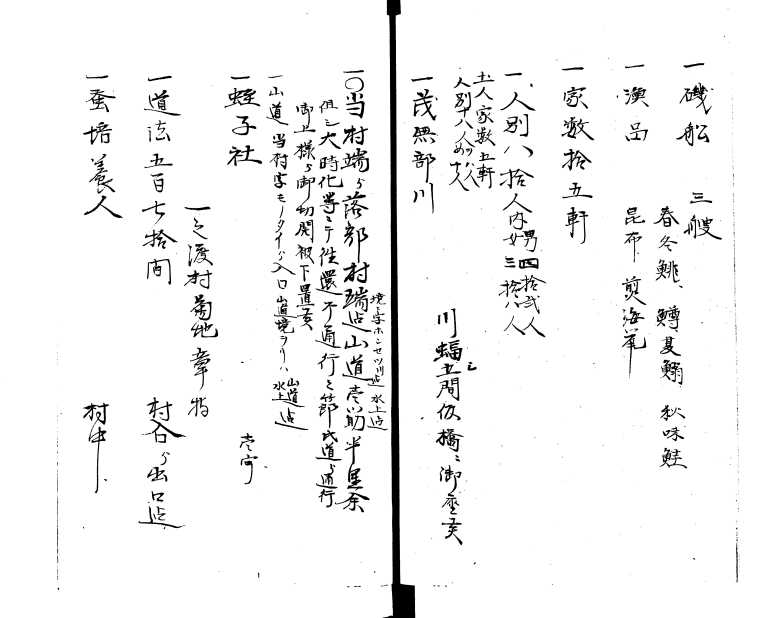 一 磯船 三艘
一 漁品 春冬鯡、鱒夏鰯 秋味鮭
昆布 煎海鼠
一 家数拾五軒
一 人別八拾人内 男四拾弐人
女三拾八人
土人家数五軒
人別十八人 男八人 女十人
一 茂無部川 川幅五間仮橋ニ御座候
一〇当村端ゟ落部村端迄山道壱筋半里余
境字ホンセツ川迄 水上迄
但シ大時化等ニテ往還不通行之節此道ゟ通行
御上様ゟ御切開被下置候
一山道 当村字モノタイゟ入口 山道境ヲリハ 山道 水上 迄
一 蛭子社 壱宇
一之渡村菊地章 持
一 道法五百七拾間 村合ゟ出口迄
一 蚕培養人 村中